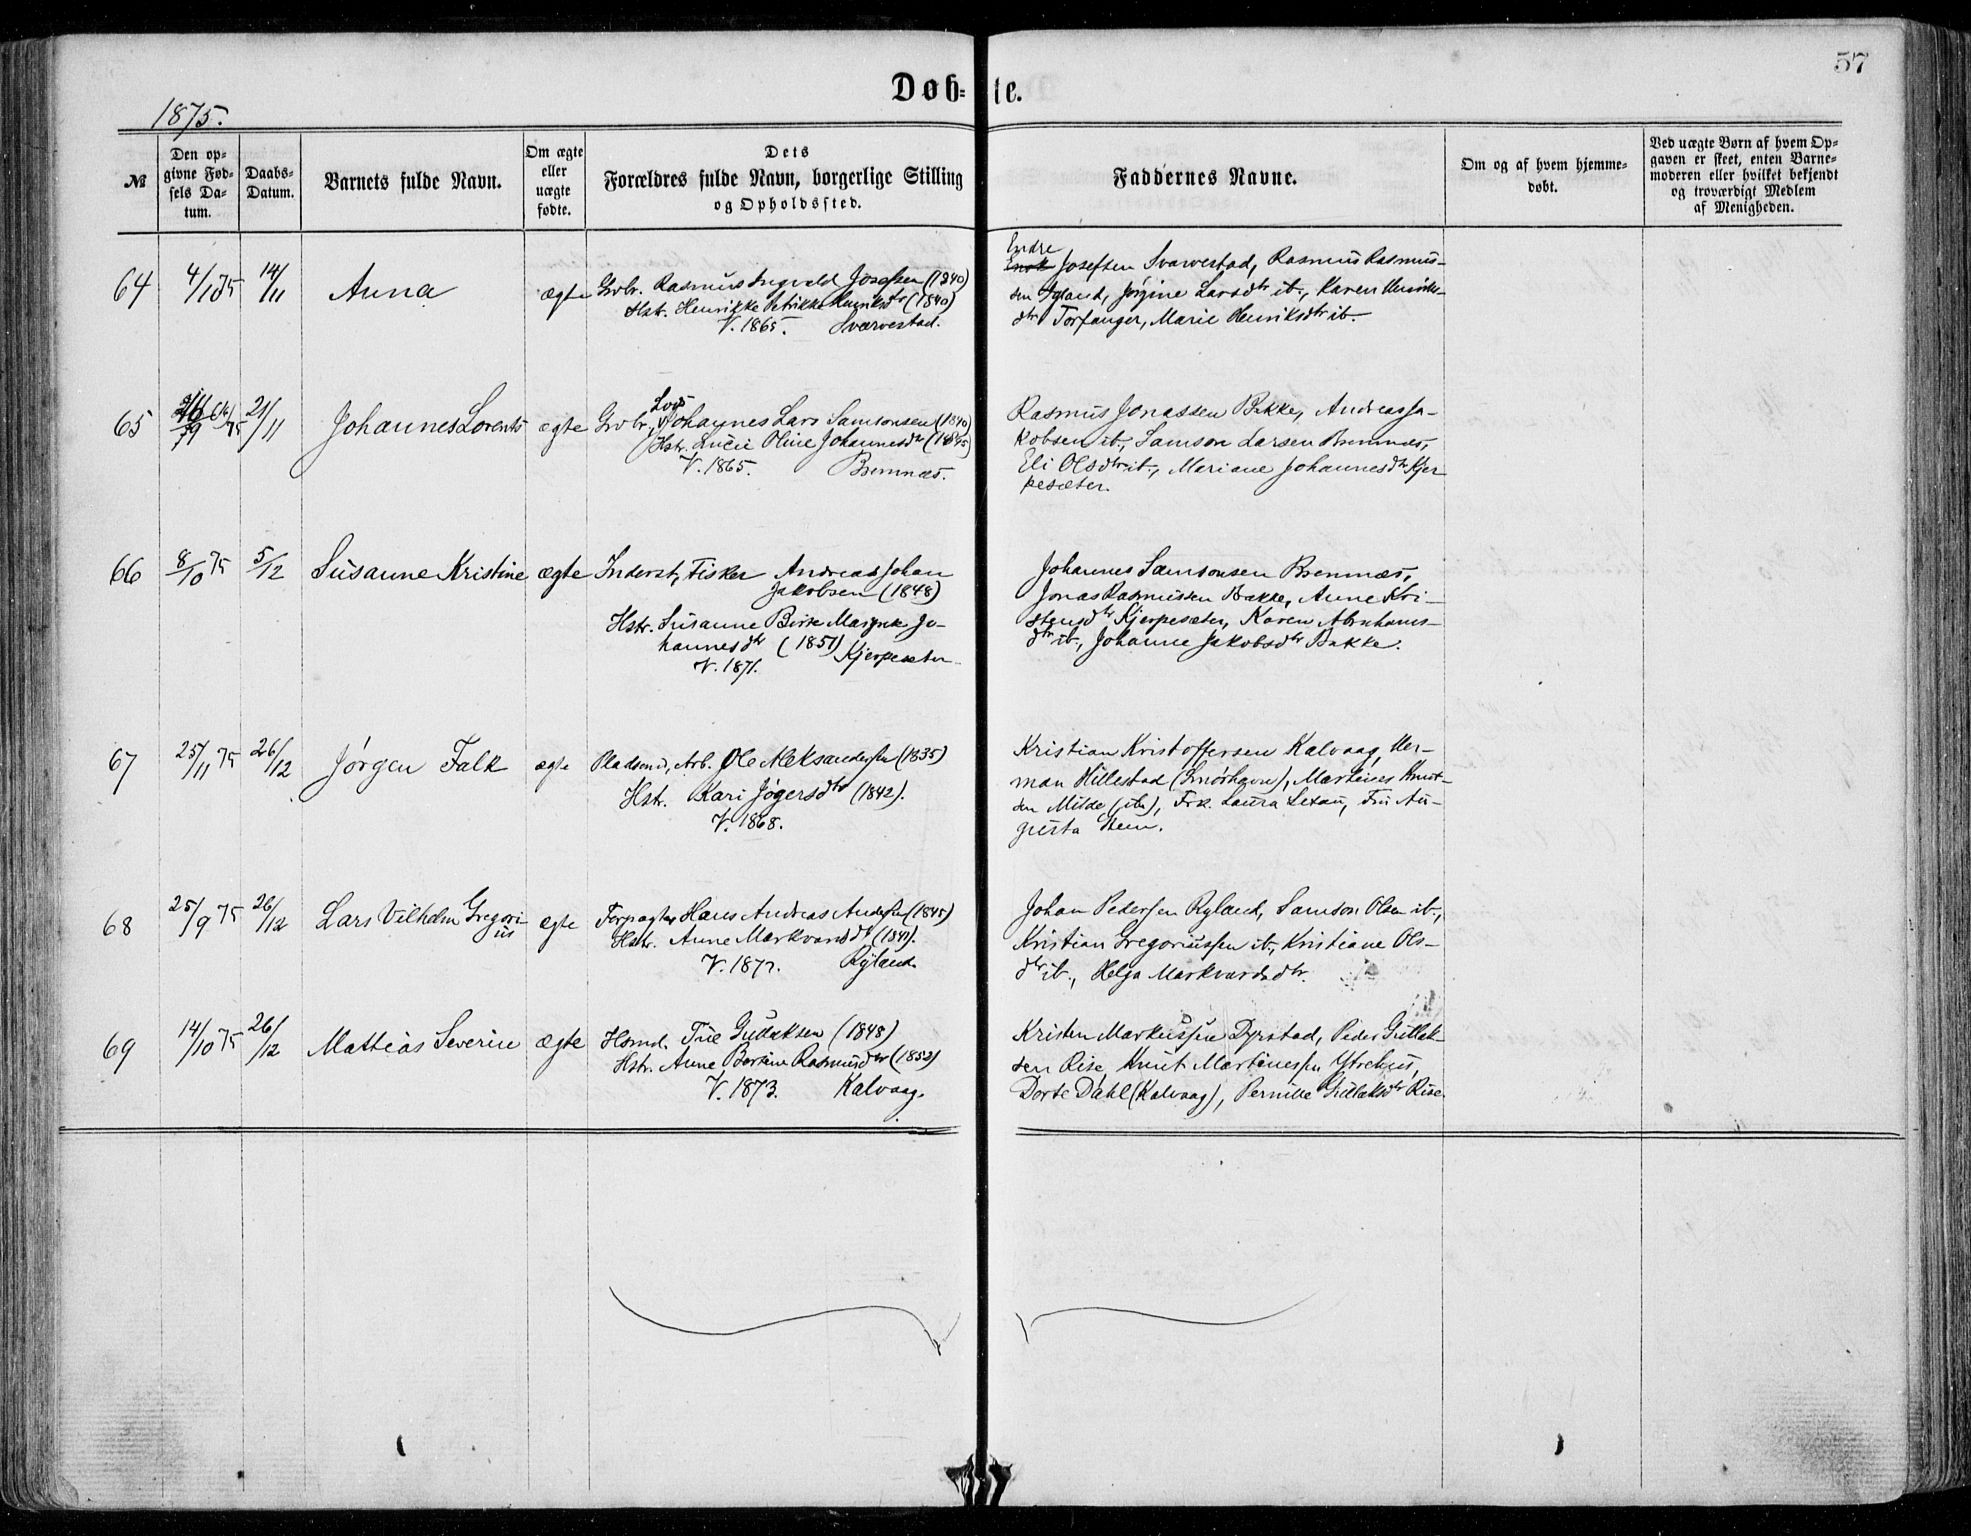 57
Døb=te.
1875.
№
Den op=
givne Fød=
sels Da=
tum.
Daabs=
Datum.
Barnets fulde Navn.
Om ægte
eller
uægte
fødte.
Dets
Forældres fulde Navn, borgerlige Stilling
og Opholdssted.
Faddernes Navne.
Om og af hvem hjemme=
døbt.
Ved uægte Børn af hvem Op=
gaven er skeet, enten Barne=
moderen eller hvilket bekjendt
og troværdigt Medlem
af Menigheden.
64 4/10 75 14/11 Anna ægte Grbr. Rasmus Ingvald Josefsen (1840)
Hstr. Henrikke Petrikke Henriksdtr (1840)
V. 1865. Svarvestad.
Endre
Josefsen Svarvestad, Rasmus Rasmus-
sen Igland, Jørgine Larsdtr ib., Karen Henriks-
dtr Torfanger, Marie Henriksdtr ib.
65 75 21/11 Johannes Lorents ægte Grbr. Johannes Lars Samsonsen (1840)
Hstr. Lucie Oline Johannesdtr (1845)
V. 1865. Bremnæs.
Rasmus Jonassen Bakke, Andreas Ja-
kobsen ib., Samson Larsen Bremnæs,
Eli Olsdtr ib., Mariane Johannesdtr Kjer
pesæter.
66 8/10 75 5/12 Susanne Kristine ægte Inderst, Fisker Andreas Johan
Jakobsen (1848)
Hstr. Susanne Birte Jo-
hannesdtr (1851) Kjerpesæter
V. 1871.
Johannes Samsonsen Bremnæs,
Jonas Rasmussen Bakke, Anne Kri-
stensdtr Kjerpesæter, Karen Abrahams-
dtr ib., Johanne Jakobsdtr Bakke.
67 25/11 75 26/12 Jørgen Falk ægte Pladsmd, Arb. Ole Aleksandersen (1835)
Hstr. Kari Jøgersdtr (1842).
V. 1868.
Kristian Kristoffersen Kalvaag, Her-
man Hillestad (Smørhavn), Martinus Knut-
sen Milde (ib), Frk. Laura Lexau, Fru Au-
gusta
68 25/9 75 26/12 Lars Vilhelm Gregori
us
ægte Forpagter Hans Andreas Andersen (1845)
Hstr. Anne Markvardsdtr (1841).
V. 1872. Ryland.
Johan Pedersen Ryland, Samson Olsen ib.,
Kristian Gregoriussen ib., Kristiane Ols-
dtr ib., Helga Markvardsdtr.
69 14/10 75 26/12 Mattias Severin ægte Hsmd. Gullaksen (1848)
Hstr. Anne Bertine Rasmusdtr (1852)
V. 1873. Kalvaag.
Kristen Markussen Dyrstad, Peder Gullak-
sen Rise, Knut Martinussen Ytrehus,
Dorte Dahl (Kalvaag), Pernille Gullaksdtr Rise.